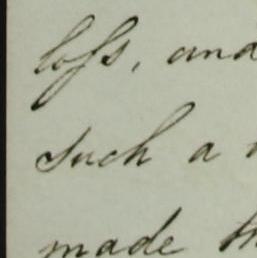 loſs, and
such a
made th